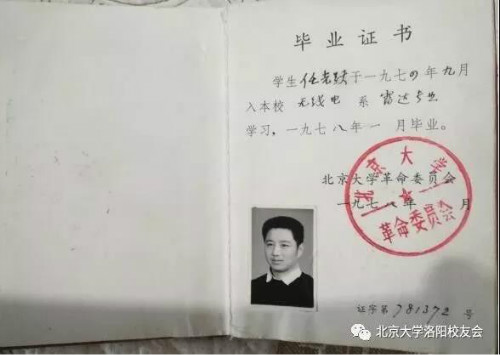 毕业证书
学生任老验于一九七四年九月
入本校无线电系雷达专业
学习,一九七八年一月毕业。
北京大学革命委员会
一九七八年一月
北京大学
革命委员会
证字第781372号
北京大学洛阳校友会